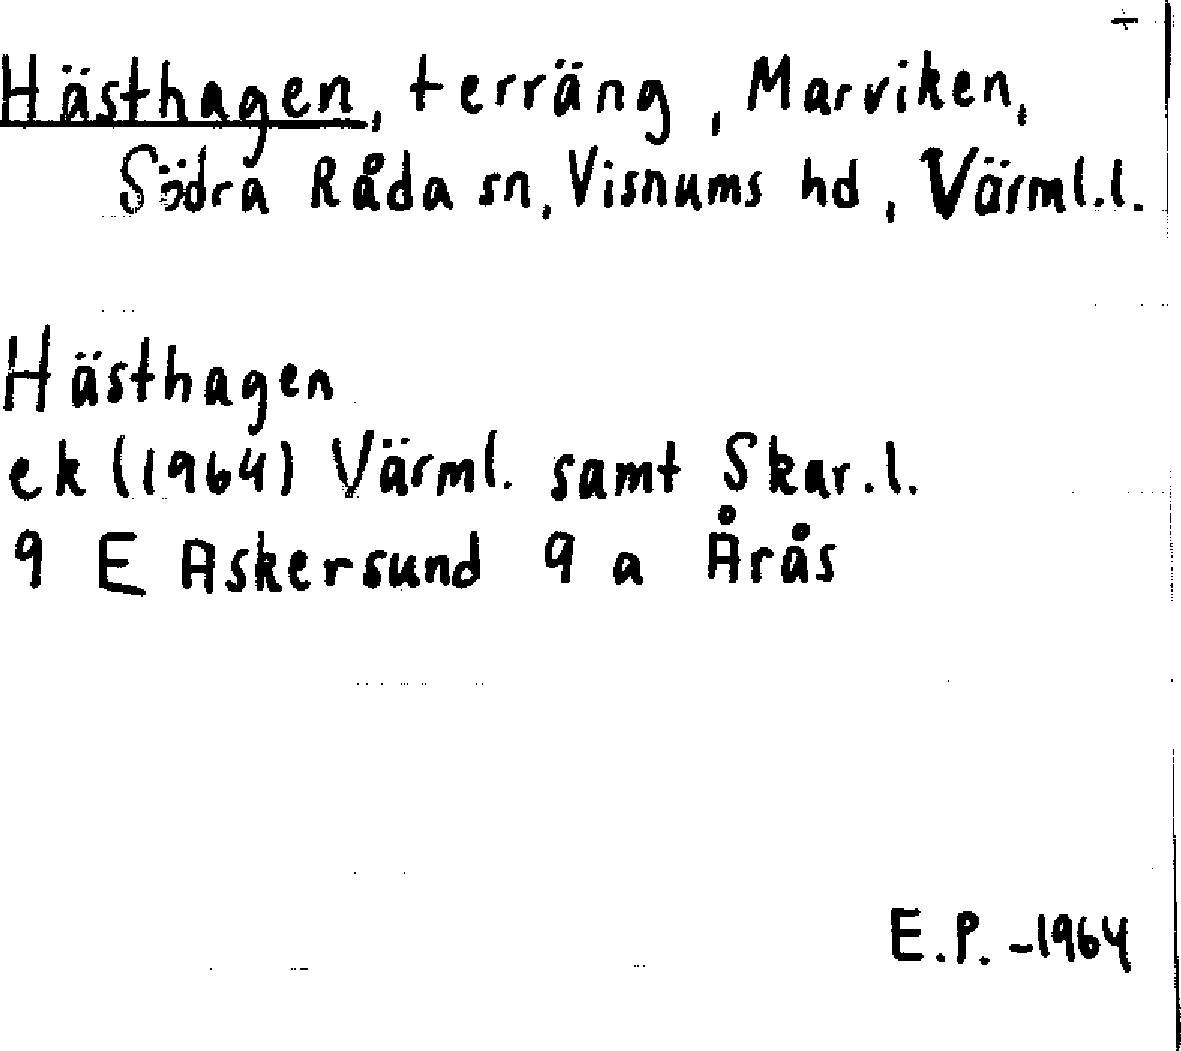 Hästhagen, terräng, Marviken,
Södra Råda sn, Visnums hd, Värml.l.
Hästhagen
ek (1964) Värml. samt Skar.l.
9 E Askersund 9 a Årås
E.P. -1964